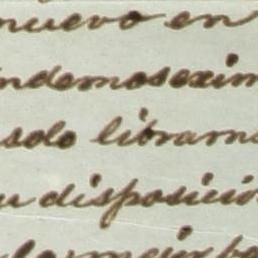 nuevo en
ndemosexim
sdo librama
u disposició